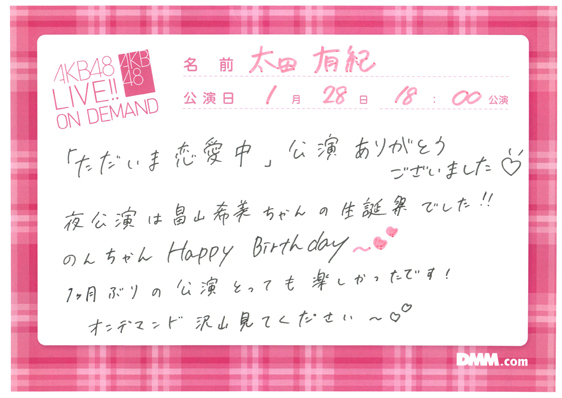 AKB48
LIVE!!
ON DEMAND
AKB
48
名前 太田 有紀
公演日 1月28日 18:00公演
「ただいま恋愛中」公演ありがとう
ございました♡
夜公演は畠山希美ちゃんの生誕祭でした!!
のんちゃん Happy Birthday～
1ヶ月ぶりの公演とっても楽しかったです!
オンデマンド沢山見てください～♡♡
DMM.com